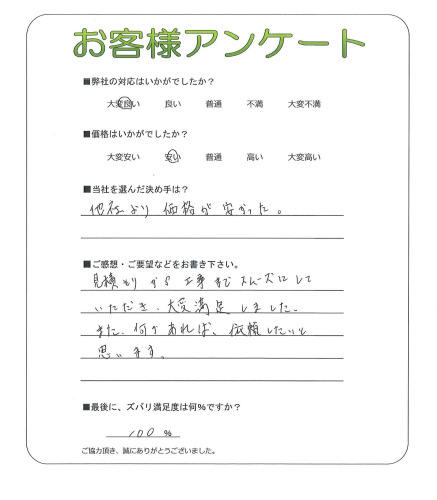 お客様アンケート
■弊社の対応はいかがでしたか？
大変良い 良い 普通 不満 大変不満
■価格はいかがでしたか？
大変安い 安い 普通 高い 大変高い
■当社を選んだ決め手は？
他社より価格が安かった。
■ご感想・ご要望などをお書き下さい。
見積もりから工事までスムーズにして
いただき、大変満足しました。
また、何かあれば、依頼したいと
思います。
■最後に、ズバリ満足度は何％ですか？
100％
ご協力頂き、誠にありがとうございました。